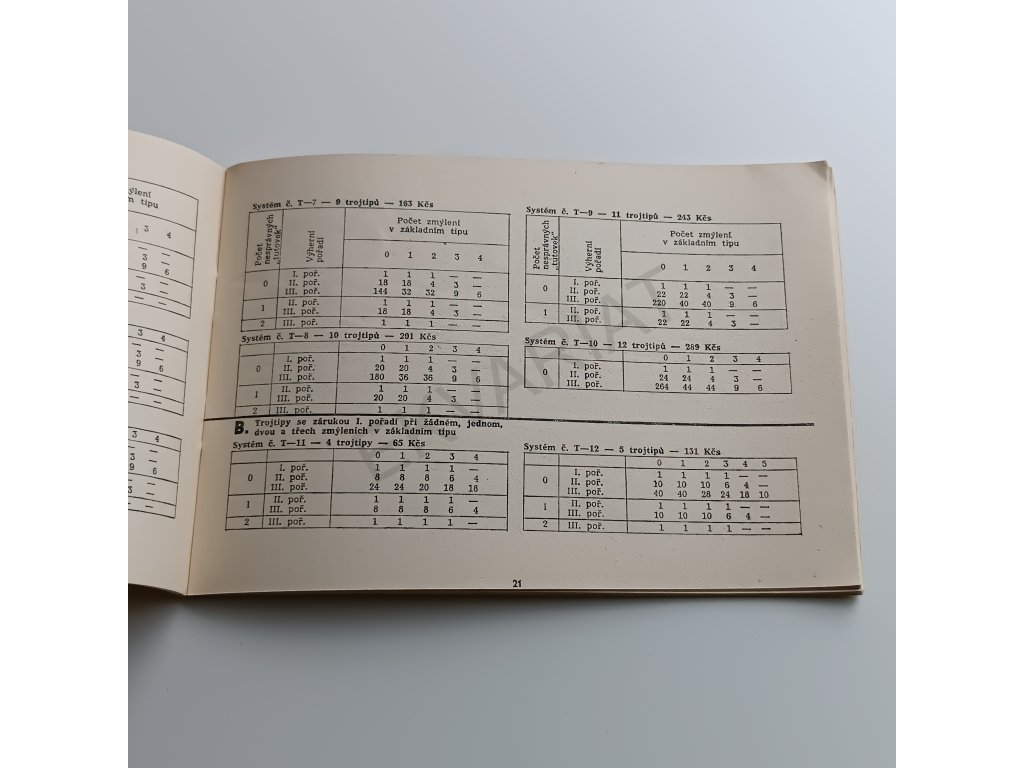 ýlení
m tipu
3 4
— —
— —
9 6
— —
3 —
— —
3 4
— —
3 —
9 6
— —
3 —
— —
3 4
— —
3 —
9 6
— —
3 —
— —
Systém č. T—7 — 9 trojtipů — 163 Kčs
Počet nesprávných „tutovek“
Výherní pořadí
Počet zmýlení
v základním tipu
0 1 2 3 4
0 I. poř. 1 1 1 — —
II. poř. 18 18 4 3 —
III. poř. 144 32 32 9 6
1 II. poř. 1 1 1 — —
III. poř. 18 18 4 3 —
2 III. poř. 1 1 1 — —
Systém č. T—8 — 10 trojtipů — 201 Kčs
0 1 2 3 4
0 I. poř. 1 1 1 — —
II. poř. 20 20 4 3 —
III. poř. 180 36 36 9 6
1 II. poř. 1 1 1 — —
III. poř. 20 20 4 3 —
2 III. poř. 1 1 1 — —
Systém č. T—9 — 11 trojtipů — 243 Kčs
Počet nesprávných „tutovek“
Výherní pořadí
Počet zmýlení
v základním tipu
0 1 2 3 4
0 I. poř. 1 1 1 — —
II. poř. 22 22 4 3 —
III. poř. 220 40 40 9 6
1 II. poř. 1 1 1 — —
III. poř. 22 22 4 3 —
Systém č. T—10 — 12 trojtipů — 289 Kčs
0 1 2 3 4
0 I. poř. 1 1 1 — —
II. poř. 24 24 4 3 —
III. poř. 264 44 44 9 6
B. Trojtipy se zárukou I. pořadí při žádném, jednom,
dvou a třech zmýleních v základním tipu
Systém č. T—11 — 4 trojtipy — 65 Kčs
0 1 2 3 4
0 I. poř. 1 1 1 1 —
II. poř. 8 8 8 6 4
III. poř. 24 24 20 18 18
1 II. poř. 1 1 1 1 —
III. poř. 8 8 8 6 4
2 III. poř. 1 1 1 1 —
Systém č. T—12 — 5 trojtipů — 131 Kčs
0 1 2 3 4 5
0 I. poř. 1 1 1 1 — —
II. poř. 10 10 10 6 4 —
III. poř. 40 40 28 24 18 10
1 II. poř. 1 1 1 1 — —
III. poř. 10 10 10 6 4 —
2 III. poř. 1 1 1 1 — —
21